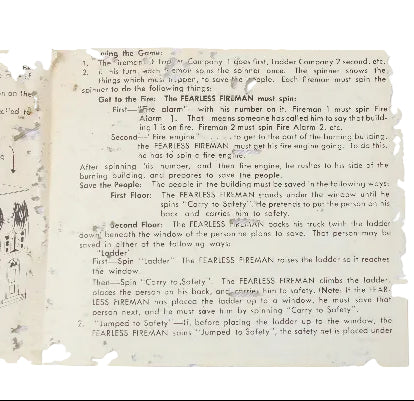 on the
cted to
ing the Game:
1. The fireman at Company 1 goes first, Ladder Company 2 second, etc.
2. In his turn each fireman spins the spinner once. The spinner shows the
things which must happen, to save the people. Each fireman must spin the
spinner to do the following things:
Get to the Fire: The FEARLESS FIREMAN must spin:
First—"Fire alarm" with his number on it. Fireman 1 must spin Fire
Alarm 1. That means someone has called him to say that build-
ing 1 is on fire. Fireman 2 must spin Fire Alarm 2, etc.
Second—"Fire engine" to get to the part of the burning building,
the FEARLESS FIREMAN must get his fire engine going. To do this,
he has to spin a fire engine.
After spinning his number, and then fire engine, he rushes to his side of the
burning building, and prepares to save the people.
Save the People: The people in the building must be saved in the following ways:
First Floor: The FEARLESS FIREMAN stands under the window until he
spins "Carry to Safety". He pretends to put the person on his
back and carries him to safety.
Second Floor: The FEARLESS FIREMAN backs his truck (with the ladder
down) beneath the window of the person he plans to save. That person may be
saved in either of the following ways:
"Ladder"
First—Spin "Ladder". The FEARLESS FIREMAN raises the ladder so it reaches
the window.
Then—Spin "Carry to Safety". The FEARLESS FIREMAN climbs the ladder,
places the person on his back, and carries him to safety. (Note: If the FEAR-
LESS FIREMAN has placed the ladder up to a window, he must save that
person next, and he must save him by spinning "Carry to Safety".
2. "Jumped to Safety"—If, before placing the ladder up to the window, the
FEARLESS FIREMAN spins "Jumped to Safety", the safety net is placed under